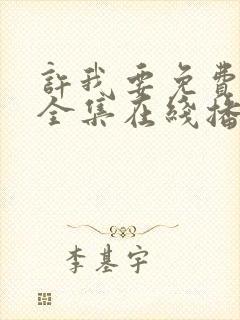 許我要免費
全集在綫播
李基宇